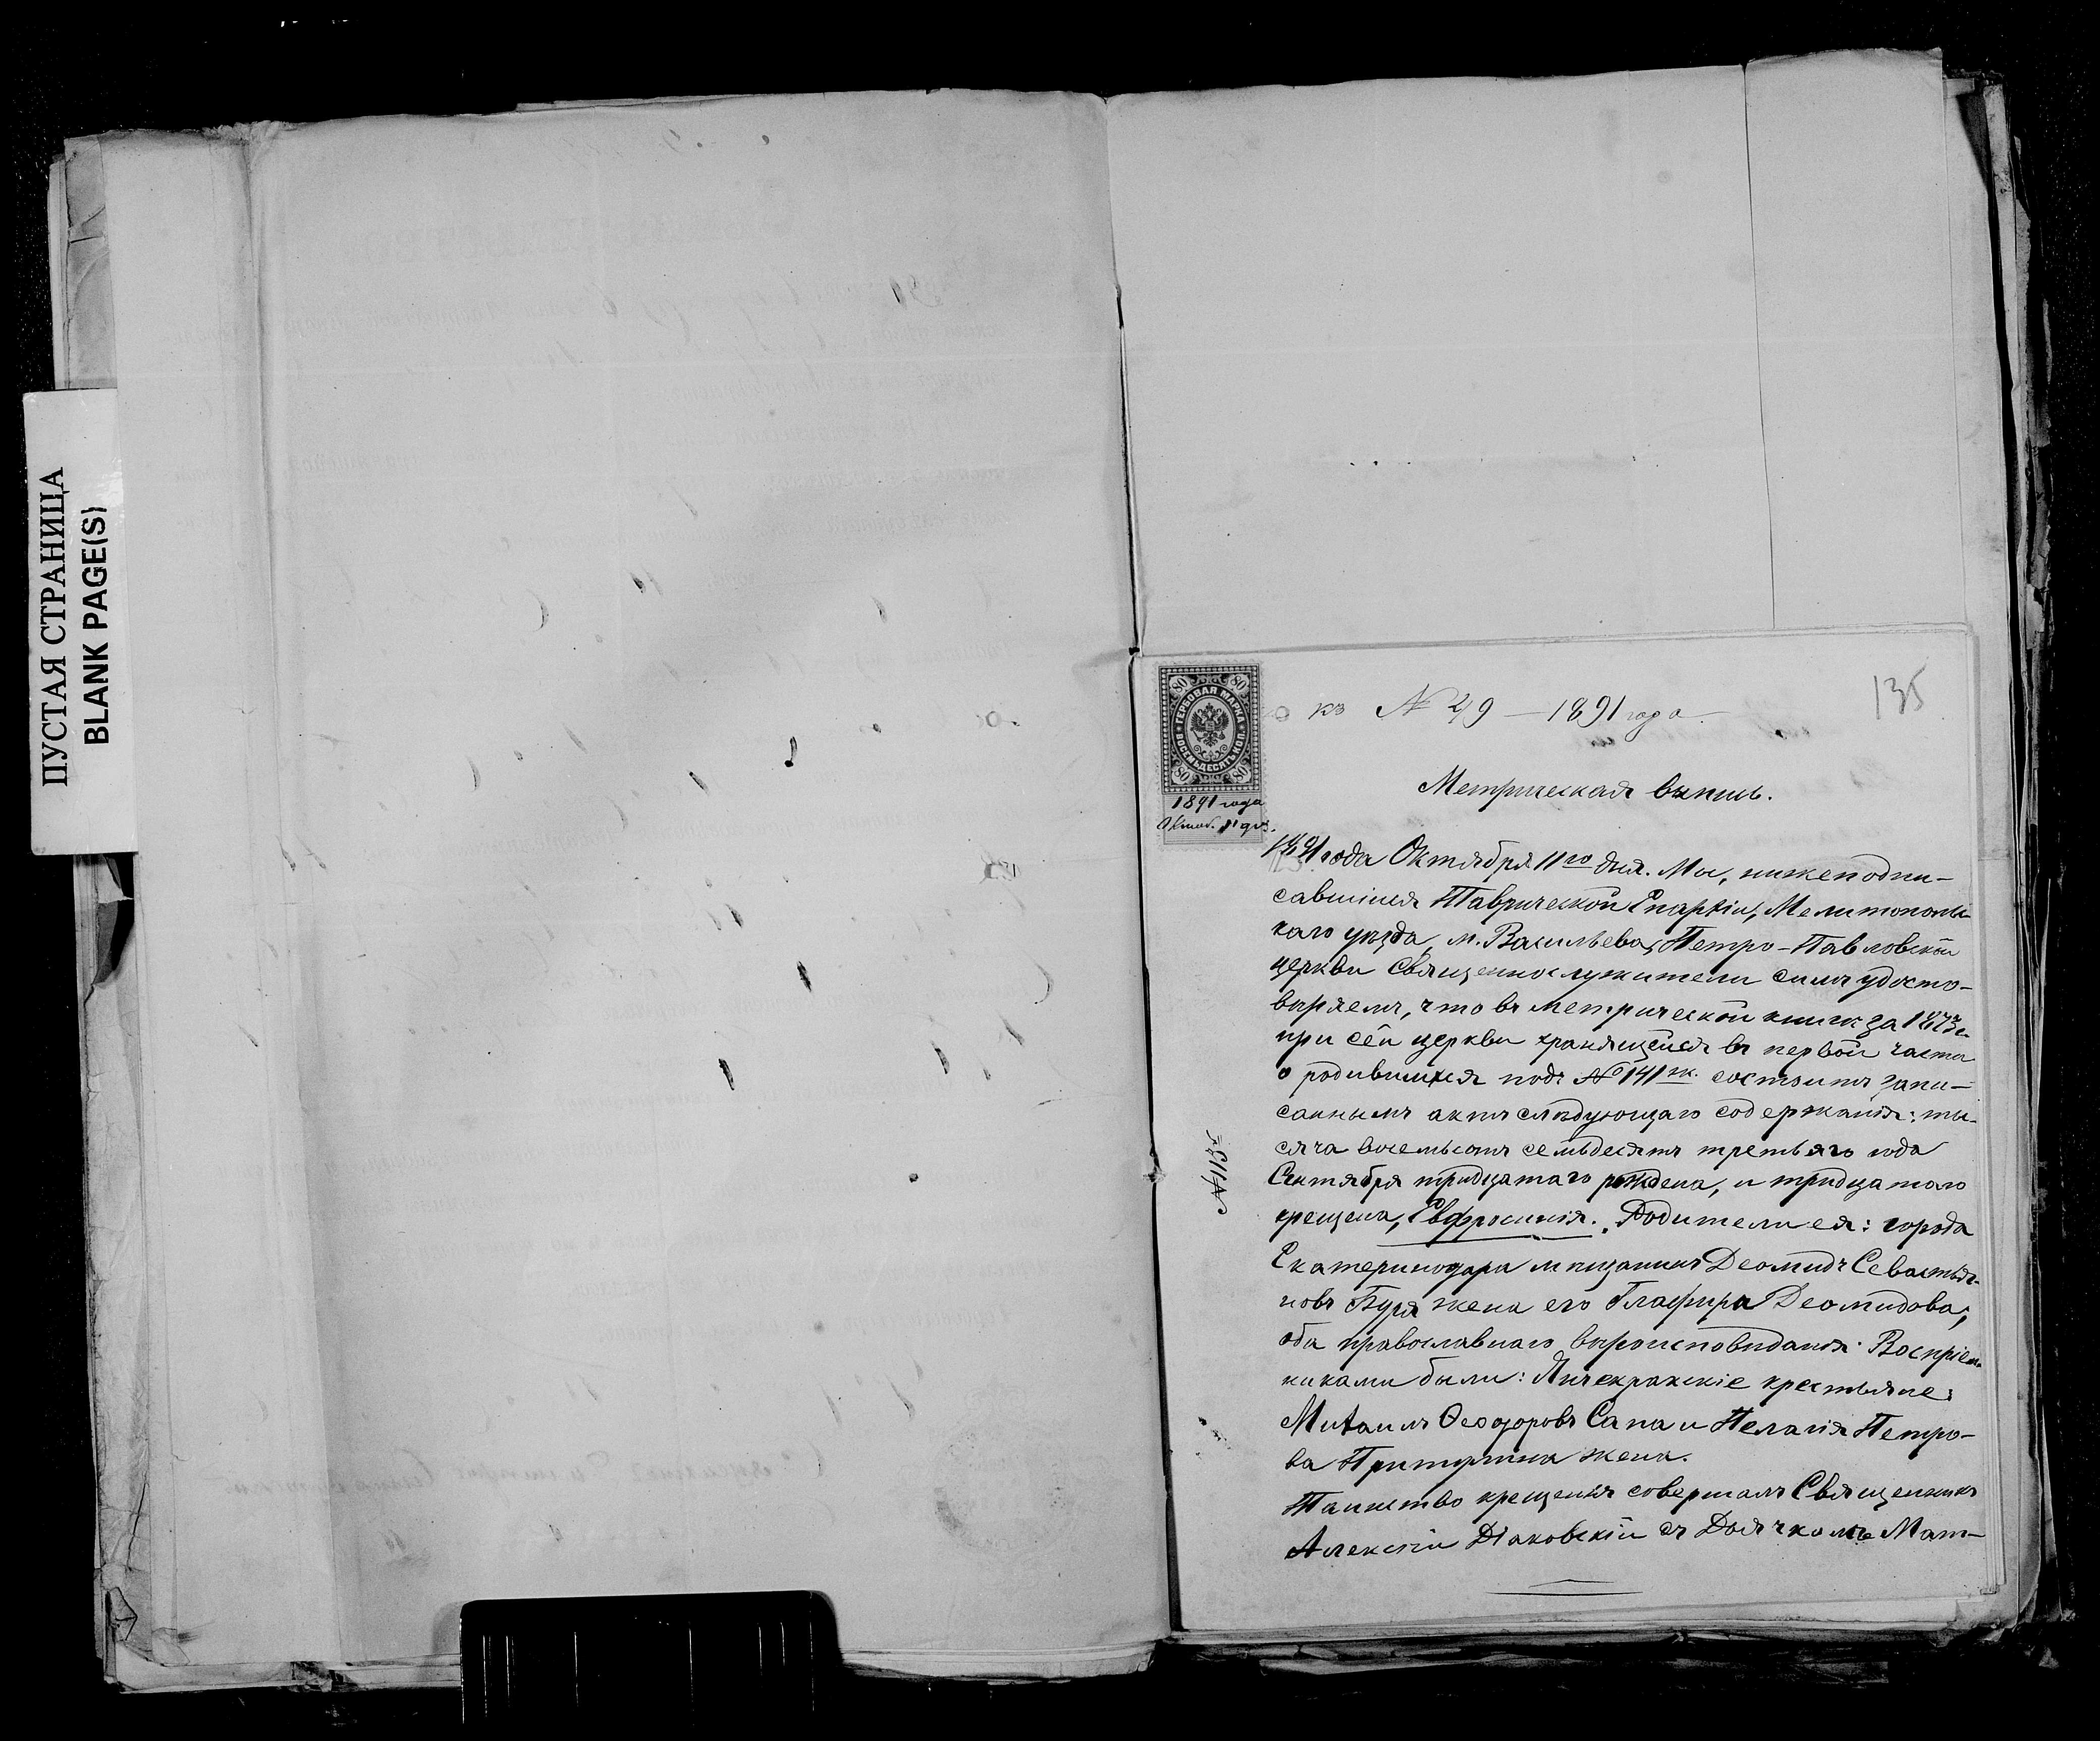 ПУСТАЯ СТРАНИЦА
BLANK PAGE(S)
135
къ № 29 — 1891 года.
80 80
ГЕРБОВАЯ МАРКА
ВОСЕМЬДЕСЯТЪ КОП.
80 80
1891 года
Октяб. 11 дня.
Метрическая выпись.
1891 года Октября 11го дня. Мы, нижеподпи-
савшіеся Таврической Епархіи, Мелитопольс-
каго уѣзда, м. Васильевки, Петро-Павловской
церкви Священнослужители симъ удосто-
вѣряемъ, что въ метрической книгѣ за 1873 г.
при сей церкви хранящейся въ первой части
о родившихся подъ № 141 ж. состоитъ запи-
саннымъ актъ слѣдующаго содержанія: ты-
сяча восемьсотъ семьдесятъ третьяго года
Сентября тридцатаго рождена, и тридцатаго
крещена, Евфросинія. Родители ея: города
Екатеринодара мѣщанинъ Деомидъ Севастья-
новъ Буря жена его Глафира Деомидова,
оба православнаго вѣроисповѣданія. Воспріем-
никами были: Янчекракскіе крестьяне:
Михаилъ Ѳеодоровъ Сапа и Пелагія Петро-
ва жена.
Таинство крещенія совершалъ Священникъ
Алексій Діаковскій съ Дьячкомъ Мат-
№ 1135